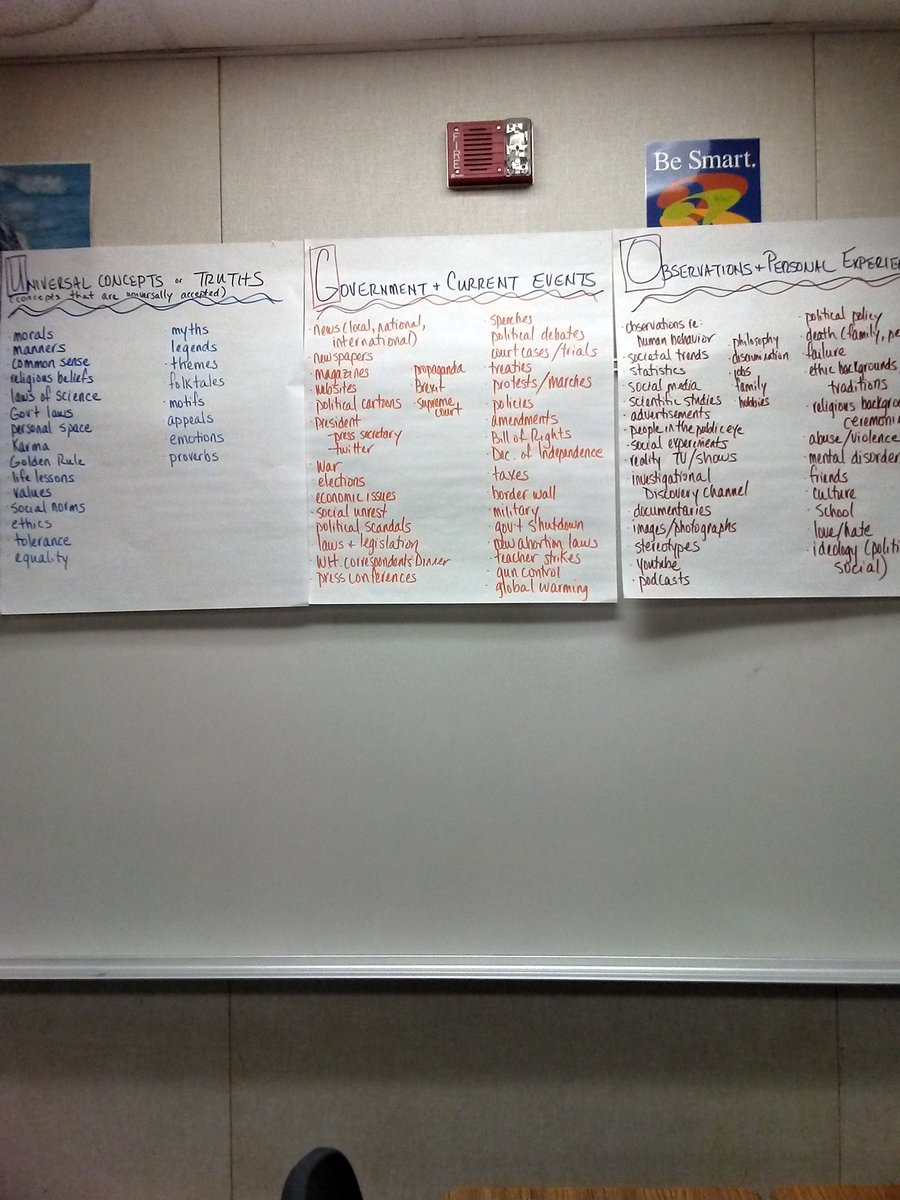 FIRE
Be Smart.
UNIVERSAL CONCEPTS or TRUTHS
(concepts that are universally accepted)
· morals
· manners
· common sense
· religious beliefs
· laws of science
· Gov't laws
· personal space
· Karma
· Golden Rule
· life lessons
· values
· social norms
· ethics
· tolerance
· equality
· myths
· legends
· themes
· folktales
· motifs
· appeals
· emotions
· proverbs
GOVERNMENT + CURRENT EVENTS
· news (local, national,
international)
· newspapers
· magazines
· websites
· political cartoons
· president
- press secretary
- twitter
· war
· elections
· economic issues
· social unrest
· political scandals
· laws + legislation
· WH. correspondents Dinner
· press conferences
· propaganda
· Brexit
· supreme
court
· speeches
· political debates
· court cases/trials
· treaties
· protests/marches
· policies
· amendments
· Bill of Rights
· Dec. of Independence
· taxes
· border wall
· military
· gov't shutdown
· abortion laws
· teacher strikes
· gun control
· global warming
OBSERVATIONS + PERSONAL EXPERIE
· observations re:
human behavior
· societal trends
· statistics
· social media
· scientific studies
· advertisements
· people in the public eye
· social experiments
· reality TV/shows
· investigational
Discovery channel
· documentaries
· images/photographs
· stereotypes
· youtube
· podcasts
· philosophy
· discrimination
· jobs
· family
· hobbies
· political policy
· death (family, pe
· failure
· ethic backgrounds
traditions
· religious backgrou
ceremoni
· abuse/violence
· mental disorder
· friends
· culture
· School
· love/hate
· ideology (politi
social)